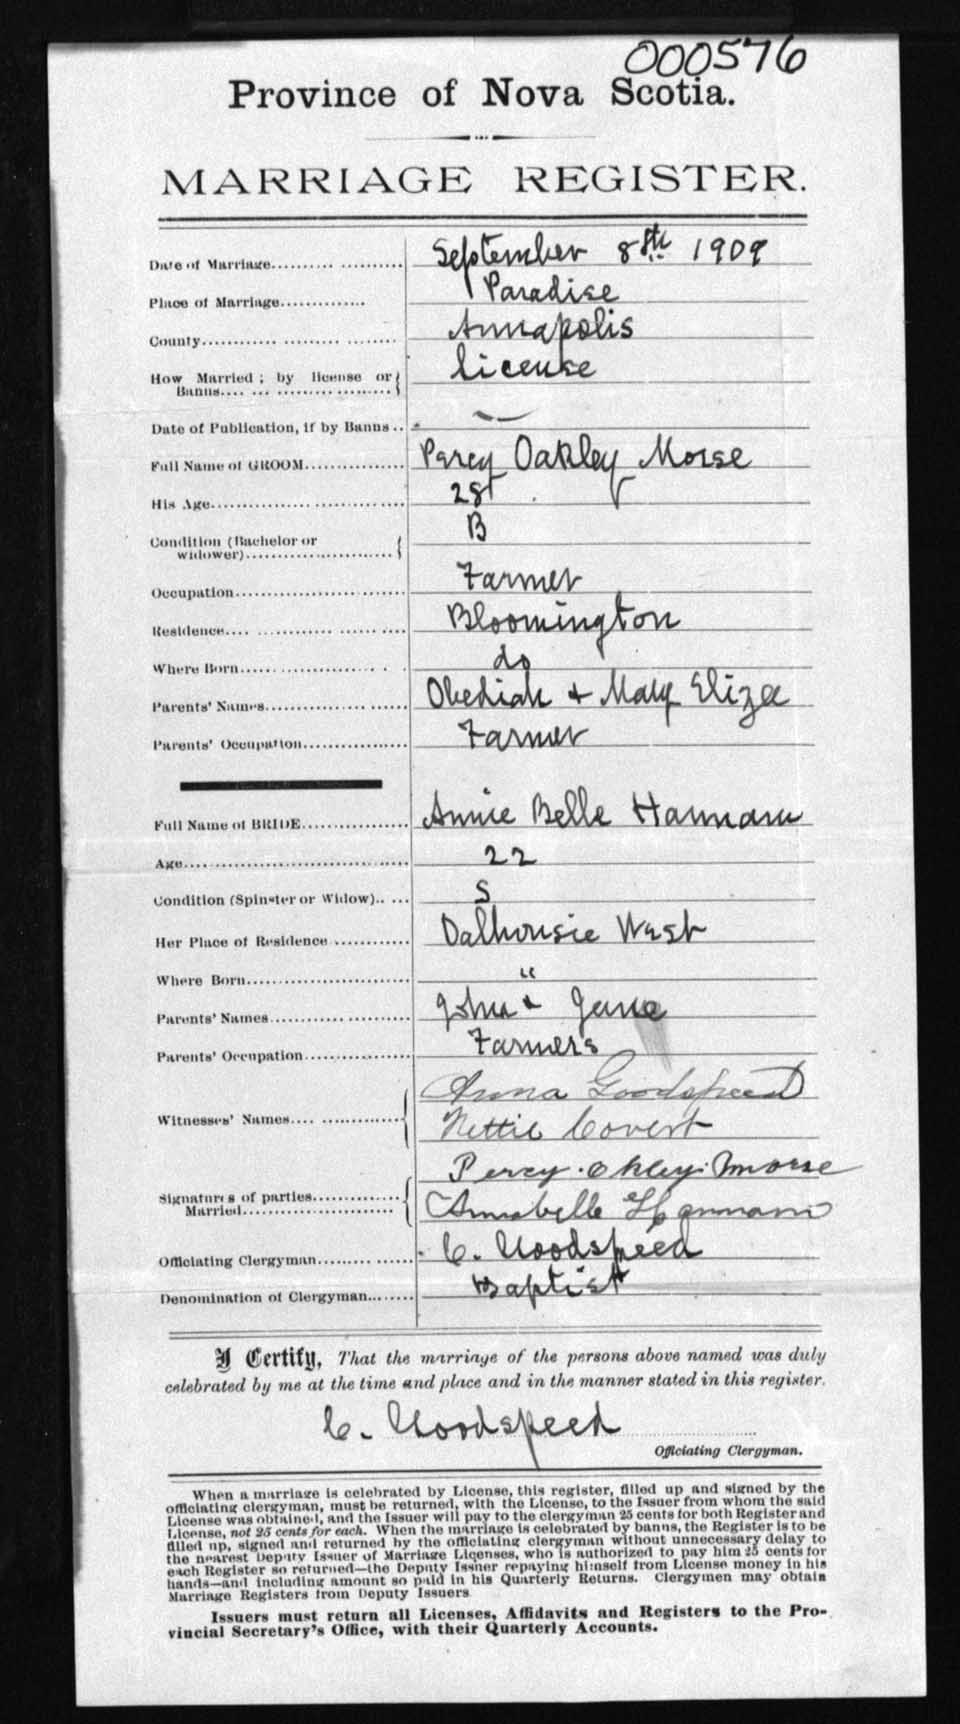 000576
Province of Nova Scotia.
MARRIAGE REGISTER.
Date of Marriage.................... September 8th 1909
Place of Marriage.............. Paradise
County........................ Annapolis
How Married; by license or } license
Banns.........................
Date of Publication, if by Banns.. —
Full Name of GROOM............... Percy Oakley Morse
His Age............................. 28
Condition (Bachelor or { B
widower).........................
Occupation.......................... Farmer
Residence.......................... Bloomington
Where Born....................... do
Parents' Names..................... Obediah & Mary Eliza
Parents' Occupation................ Farmer
Full Name of BRIDE................ Annie Belle Hannam
Age................................. 22
Condition (Spinster or Widow)..... S
Her Place of Residence............ Dalhousie West
Where Born......................... "
Parents' Names..................... John & Jane
Parents' Occupation................ Farmers
Anna Goodspeed
Witnesses' Names.................
Nettie Covert
Percy Okley Morse
Signatures of parties.............
Married.......................... Annabelle Hannam
Officiating Clergyman.............. C. Goodspeed
Denomination of Clergyman....... Baptist
I Certify, That the marriage of the persons above named was duly
celebrated by me at the time and place and in the manner stated in this register.
C. Goodspeed
Officiating Clergyman.
When a marriage is celebrated by License, this register, filled up and signed by the
officiating clergyman, must be returned, with the License, to the Issuer from whom the said
License was obtained, and the Issuer will pay to the clergyman 25 cents for both Register and
License, not 25 cents for each. When the marriage is celebrated by banns, the Register is to be
filled up, signed and returned by the officiating clergyman without unnecessary delay to
the nearest Deputy Issuer of Marriage Licenses, who is authorized to pay him 25 cents for
each Register so returned—the Deputy Issuer repaying himself from License money in his
hands—and including amount so paid in his Quarterly Returns. Clergymen may obtain
Marriage Registers from Deputy Issuers
Issuers must return all Licenses, Affidavits and Registers to the Pro-
vincial Secretary's Office, with their Quarterly Accounts.